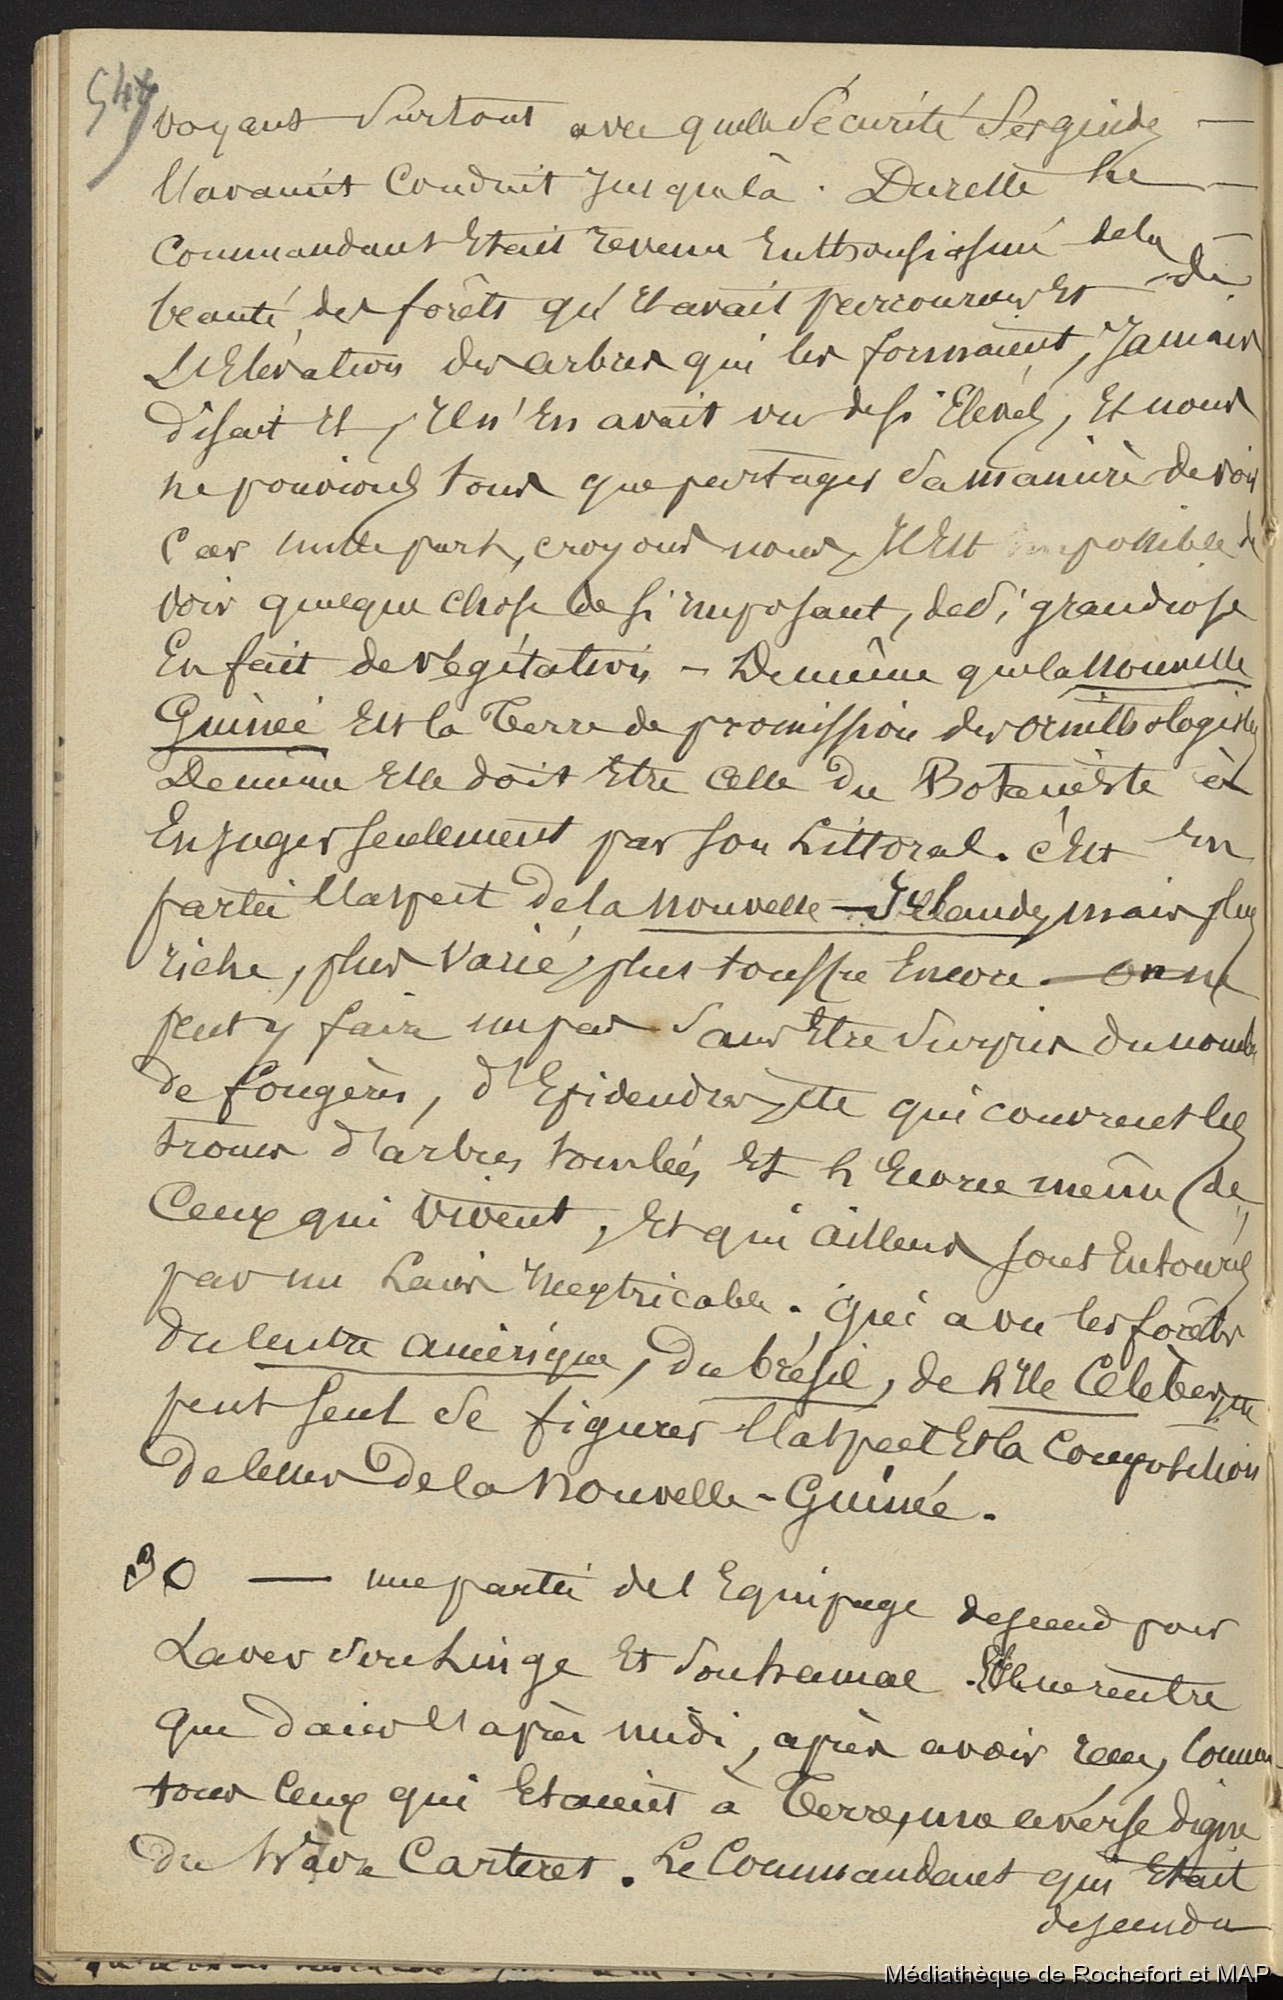 547
voyant surtout avec quelle sécurité ses guides —
l'avaient conduit jusque là. Dureste le —
Commandant Etait revenu Enthousiasmé dela —
beauté des forêts qu'il avait parcourues Et de
L'Elévation des arbres qui les formaient, Jamais
disait il, il n'En avait vu de si Elevés, Et nous
ne pouvions tous que partager sa manière de voir
Car nulle part, croyons nous, Il Est impossible de
voir quelque chose de si imposant, de si grandiose
En fait de végétation – De même que la Nouvelle
Guinée Est la Terre de promission des ornithologistes
De même Elle doit Etre Celle du Botaniste à
En juger seulement par son Littoral. c'Est En
partie l'aspect de la Nouvelle – Irlande, mais plus
riche, plus varié, plus touffu Encore. — On ne
peut y faire un pas sans Etre surpris du nombre
de fougères, d'Epidendres, etc qui couvrent les
troncs d'arbres tombés Et l'Ecorce même de
Ceux qui vivent, Et qui ailleurs sont Entourés
par un Lacis inextricable. Qui a vu les forêts
du Centre Amérique, du brésil, de l'île Célèbes, etc
peut seul se figurer l'aspect Et la Composition
de celles de la Nouvelle-Guinée.
30 — une partie de l'Equipage descend pour
Laver son Linge Et son hamac. Elle ne rentre
que dans l'après midi, après avoir reçu, Comme
tous Ceux qui Etaient à Terre, une averse digne
du havre Carteret. Le Commandant qui Etait
descendu
Médiathèque de Rochefort et MAP